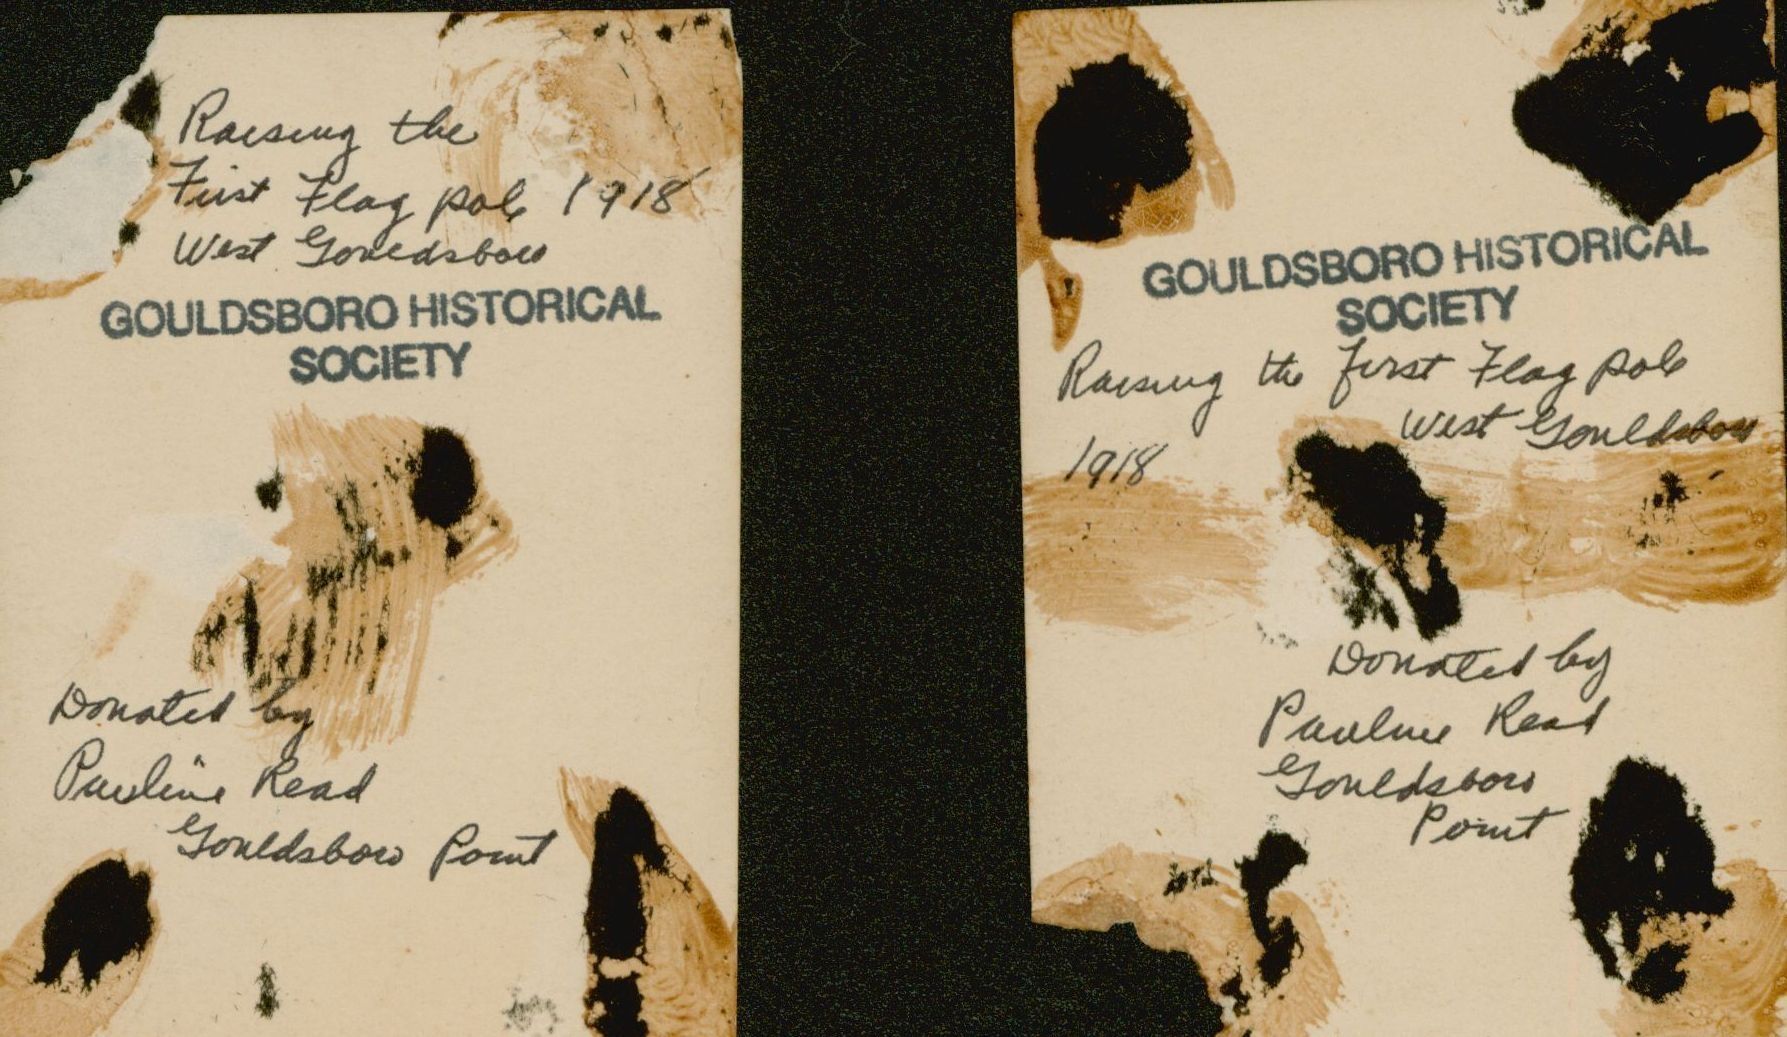 Raising the
First Flag pole 1918
West Gouldsboro
GOULDSBORO HISTORICAL
SOCIETY
Donated by
Pauline Read
Gouldsboro Point
GOULDSBORO HISTORICAL
SOCIETY
Raising the first Flag pole
West Gouldsboro
1918
Donated by
Pauline Read
Gouldsboro
Point